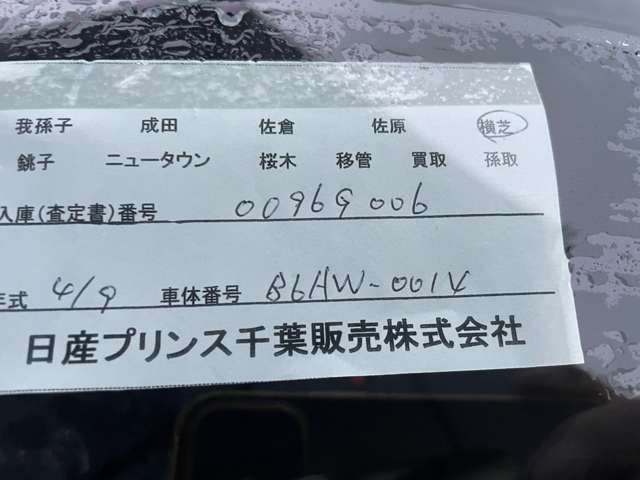 我孫子 成田 佐倉 佐原 横芝
銚子 ニュータウン 桜木 移管 買取 孫取
入庫(査定書)番号 00969006
年式 4/9 車体番号 B6AW-001V
日産プリンス千葉販売株式会社